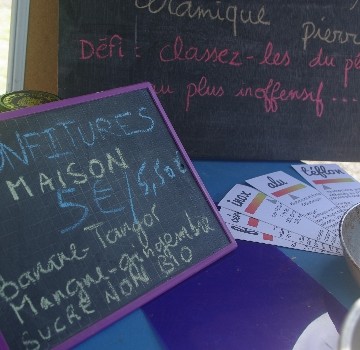 céramique pierr
Défi : classez-les du pl
au plus inoffensif...
ONFITURES
MAISON
5€/5,50€
Banane Tango
Mangue-gingembre
SUCRE NON BIO
inox
alu
téflon